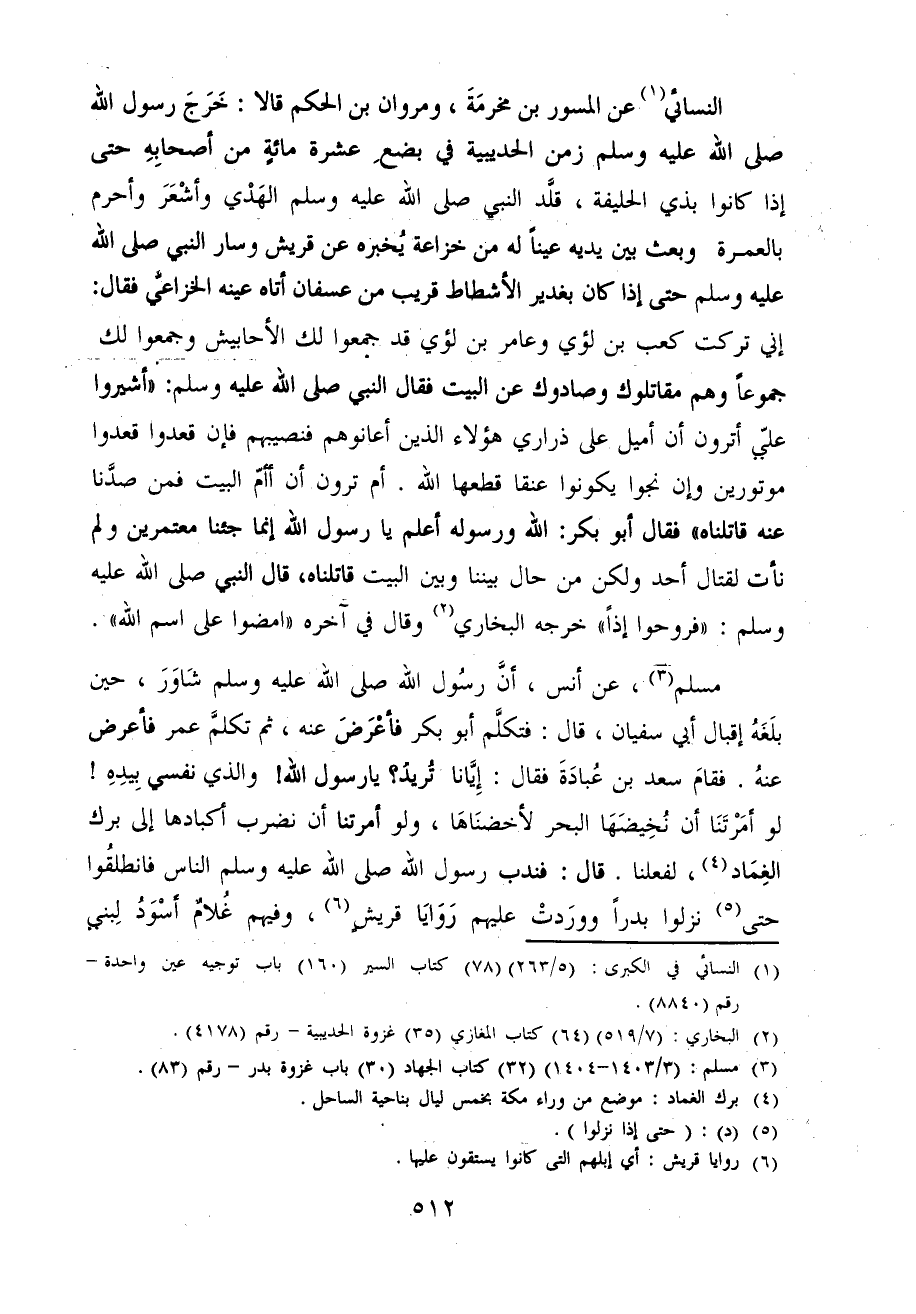 النسائي(١) عن المسور بن مخرمَةَ ، ومروان بن الحكم قالا : خَرَجَ رسول الله
صلى الله عليه وسلم زمن الحديبية في بضعِ عشرة مائةٍ من أصحابِهِ حتى
إذا كانوا بذي الحليفة ، قلَّد النبي صلى الله عليه وسلم الهَدْي وأشْعَرَ وأحرم
بالعمـرة وبعث بين يديه عيناً له من خزاعة يُخبره عن قريش وسار النبي صلى الله
عليه وسلم حتى إذا كان بغدير الأشطاط قريب من عسفان أتاه عينه الخزاعيُّ فقال:
إني تركت كعب بن لؤي وعامر بن لؤي قد جمعوا لك الأحابيش وجمعوا لك
جموعاً وهم مقاتلوك وصادوك عن البيت فقال النبي صلى الله عليه وسلم: «أشيروا
عليّ أترون أن أميل على ذراري هؤلاء الذين أعانوهم فنصيبهم فإن قعدوا قعدوا
موتورين وإن نجوا يكونوا عنقا قطعها الله . أم ترون أن أأمّ البيت فمن صدَّنا
عنه قاتلناه» فقال أبو بكر: الله ورسوله أعلم يا رسول الله إنما جئنا معتمرين ولم
نأت لقتال أحد ولكن من حال بيننا وبين البيت قاتلناه، قال النبي صلى الله عليه
وسلم : «فروحوا إذاً» خرجه البخاري(٢) وقال في آخره «امضوا على اسم الله» .
مسلم(٣) ، عن أنس ، أنَّ رسُول الله صلى الله عليه وسلم شَاوَرَ ، حين
بلَغَهُ إقبال أبي سفيان ، قال : فتكلَّم أبو بكر فأعْرَضَ عنه ، ثم تكلمَّ عمر فأعرض
عنهُ . فقامَ سعد بن عُبادَةَ فقال : إيَّانا تُريدُ؟ يارسول الله! والذي نفسي بِيدِهِ !
لو أمَرْتَنَا أن نُخِيضَهَا البحر لأخضنَاهَا ، ولو أمرتنا أن نضرب أكبادها إلى برك
الغِمَاد(٤) ، لفعلنا . قال : فندب رسول الله صلى الله عليه وسلم الناس فانطلقُوا
حتى(٥) نزلوا بدراً ووردتْ عليهم رَوَايَا قريشٍ(٦) ، وفيهم غُلامٌ أسْوَدُ لِبني
(١) النسائي في الكبرى : (٢٦٣/٥) (٧٨) كتاب السير (١٦٠) باب توجيه عين واحدة –
رقم (٨٨٤٠) .
(٢) البخاري : (٥١٩/٧) (٦٤) كتاب المغازي (٣٥) غزوة الحديبية – رقم (٤١٧٨) .
(٣) مسلم : (١٤٠٣/٣–١٤٠٤) (٣٢) كتاب الجهاد (٣٠) باب غزوة بدر – رقم (٨٣) .
(٤) برك الغماد : موضع من وراء مكة بخمس ليال بناحية الساحل .
(٥) (د) : ( حتى إذا نزلوا ) .
(٦) روايا قريش : أي إبلهم التى كانوا يستقون عليها .
٥١٢